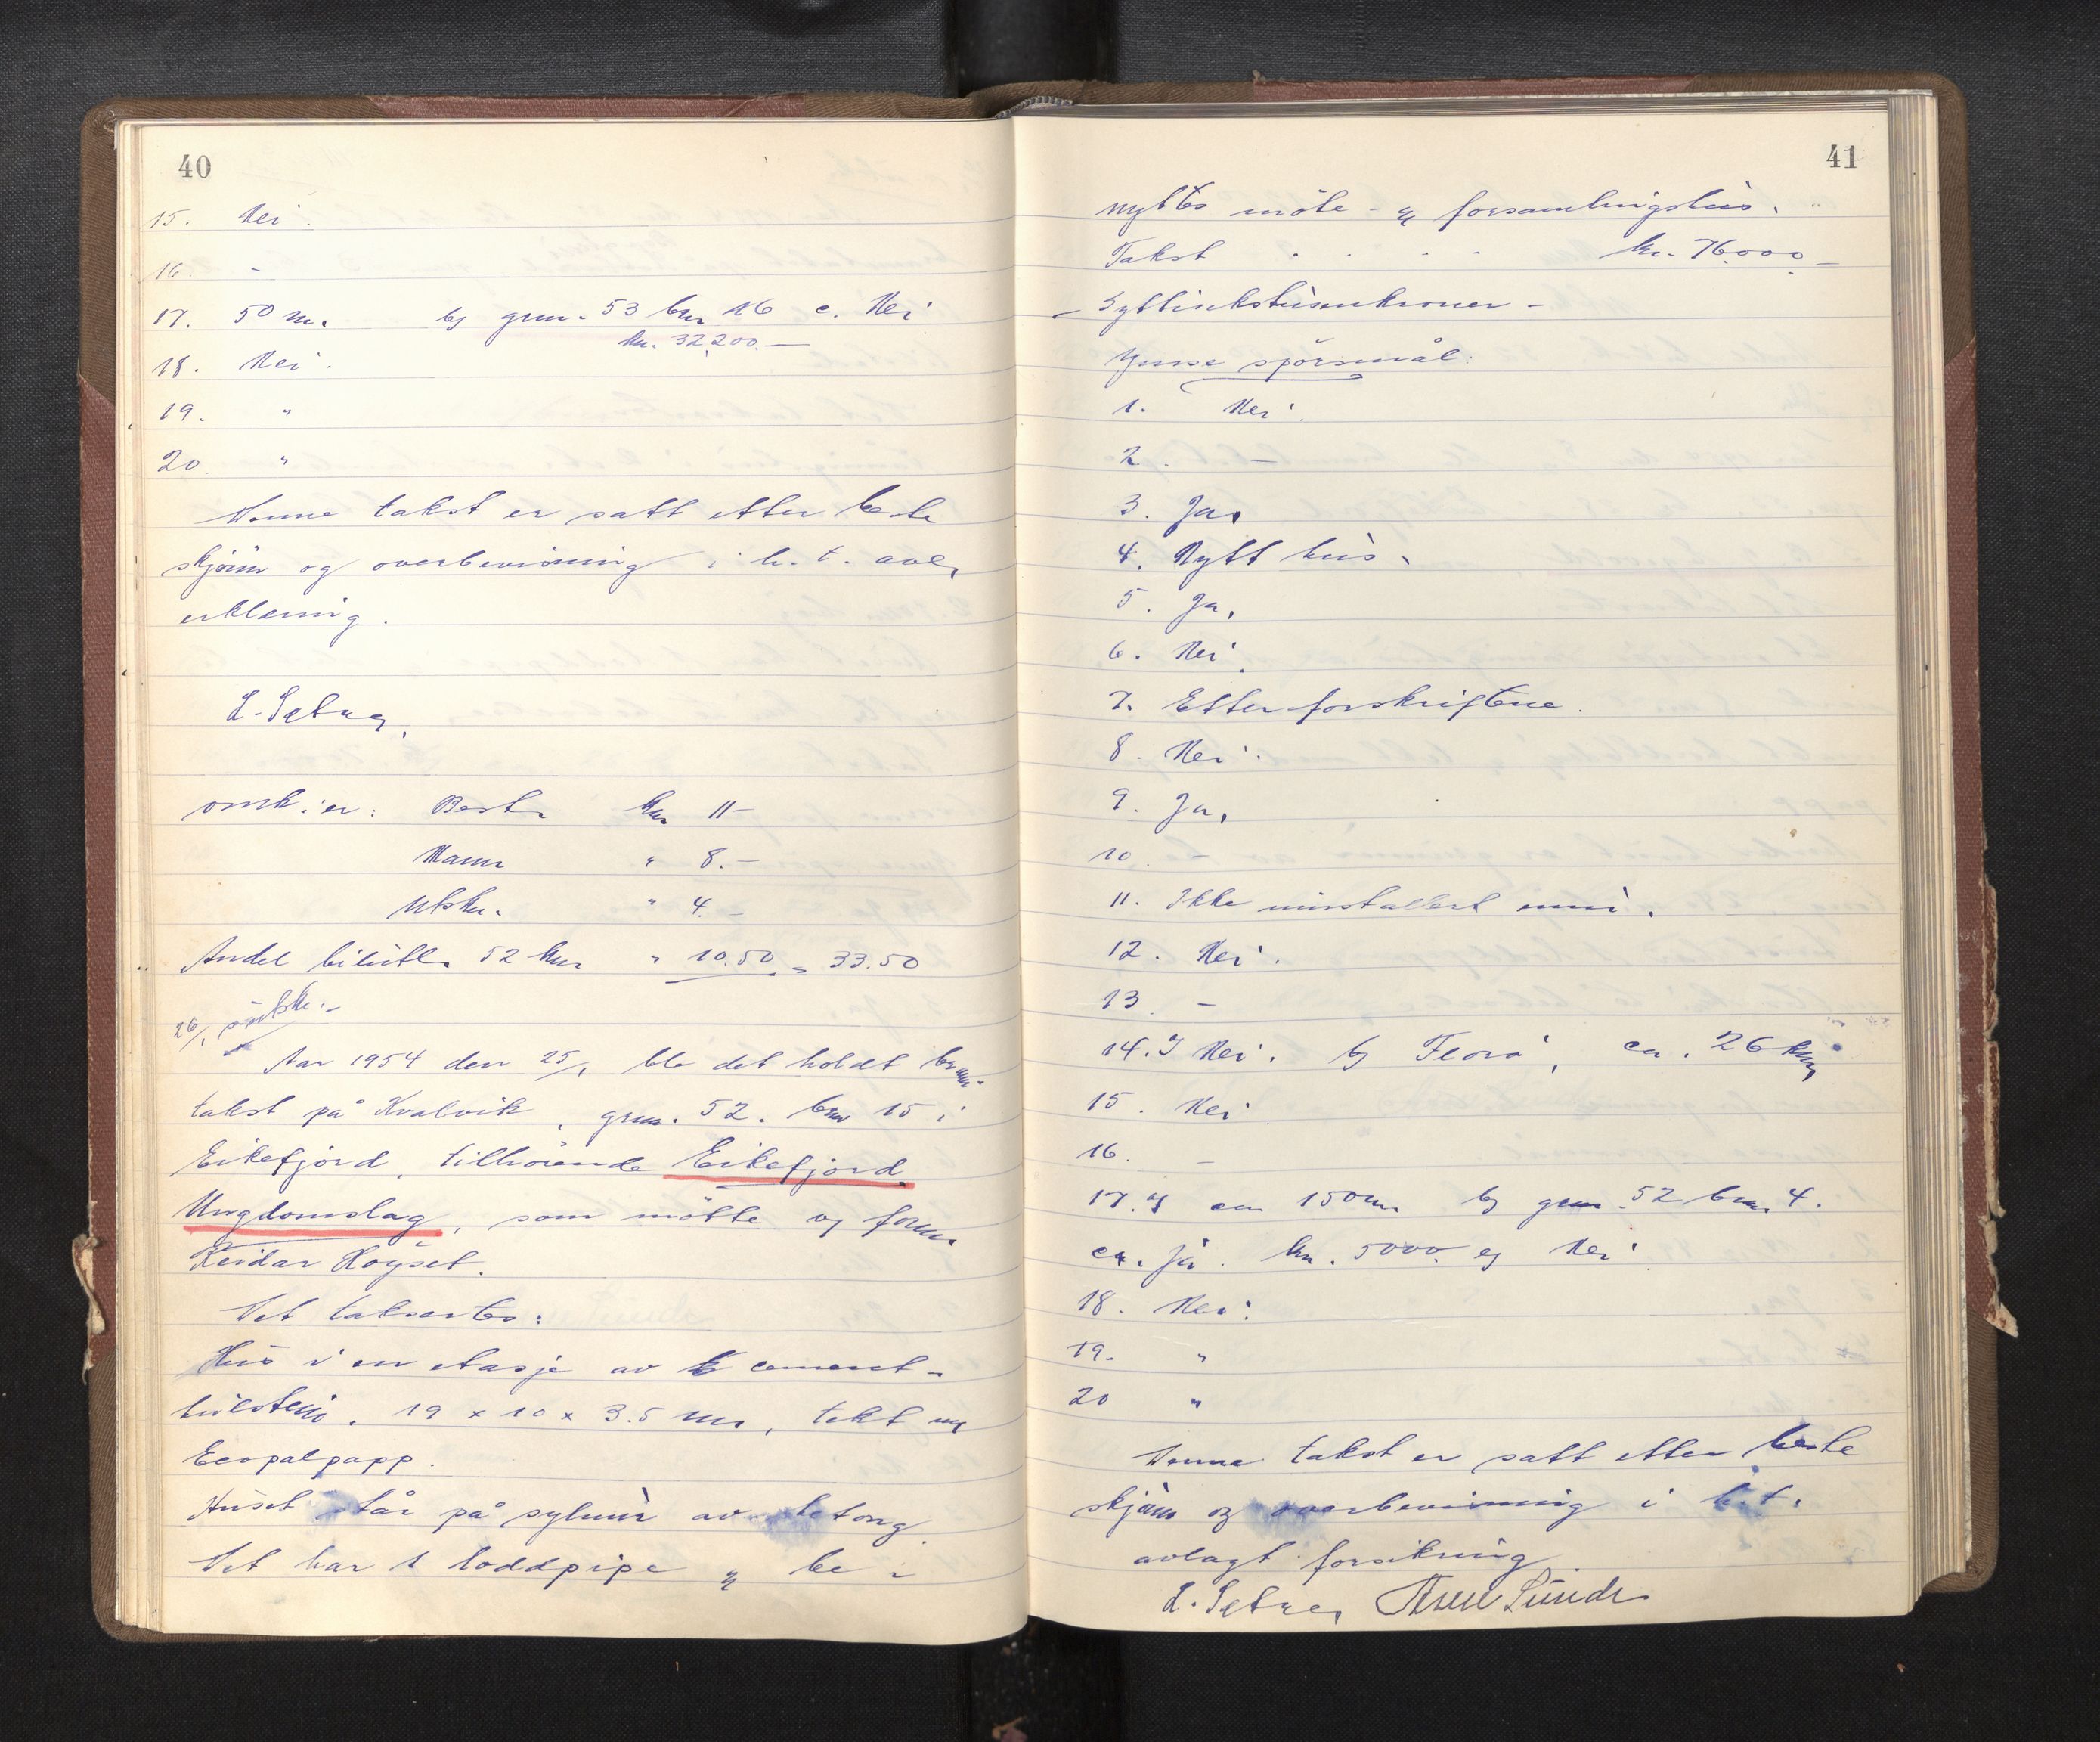 40
15. Nei.
16. -
17. 50 m. b) grnr. 53 bnr 16 c. Nei
kr. 32,200.—
18. Nei.
19. "
20. "
Denne takst er satt etter beste
skjönn og overbevisning i h. t. avl.
erklæring.
L. Setnes,
omk.er: Best. kr. 11-
Mann " 8.-
Utskr. " 4.-
Andel bilutl. 52 km " 10.50 = 33.50
26/1
Aar 1954 den 25/1 ble det holdt brann-
takst på Kvalvik, grnr. 52. bnr 15 i
Eikefjord, tilhörende Eikefjord
Ungdomslag, som mötte v/ form.
Reidar Högset.
Det takseres:
Hus i en etasje av cement-
hulstein. 19 x 10 x 3.5 m, tekt m/
Ecopalpapp.
Huset står på sylmur av betong
Det har 1 loddpipe og be-
41
nyttes möte- og forsamlingshus.
Takst . . . . kr. 76.000-
- Syttisekstusenkroner -
Ymse spörsmål:
1. Nei.
2. -
3. Ja,
4. Nytt hus.
5. Ja,
6. Nei.
7. Etter forskriftene.
8. Nei.
9. Ja,
10. -
11. Ikke innstallert ennu.
12. Nei.
13. -
14. Nei. b) Florö, ca. 26 km,
15. Nei
16. -
17. a) ca 150 m b) grnr. 52 bnr. 4.
kr. 5000. Nei
18. Nei.
19. "
20 "
Denne takst er satt etter beste
skjönn og overbevisning i h.t.
avlagt forsikring
L. Setnes, Sunde